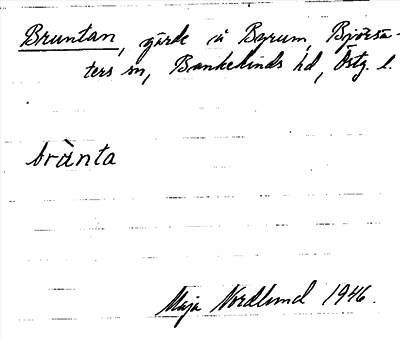 Bruntan, gärde i Byrum, Björsä-
ters sn, Bankekinds hd, Östg. l.
brùnta
Maja Nordlund 1946.